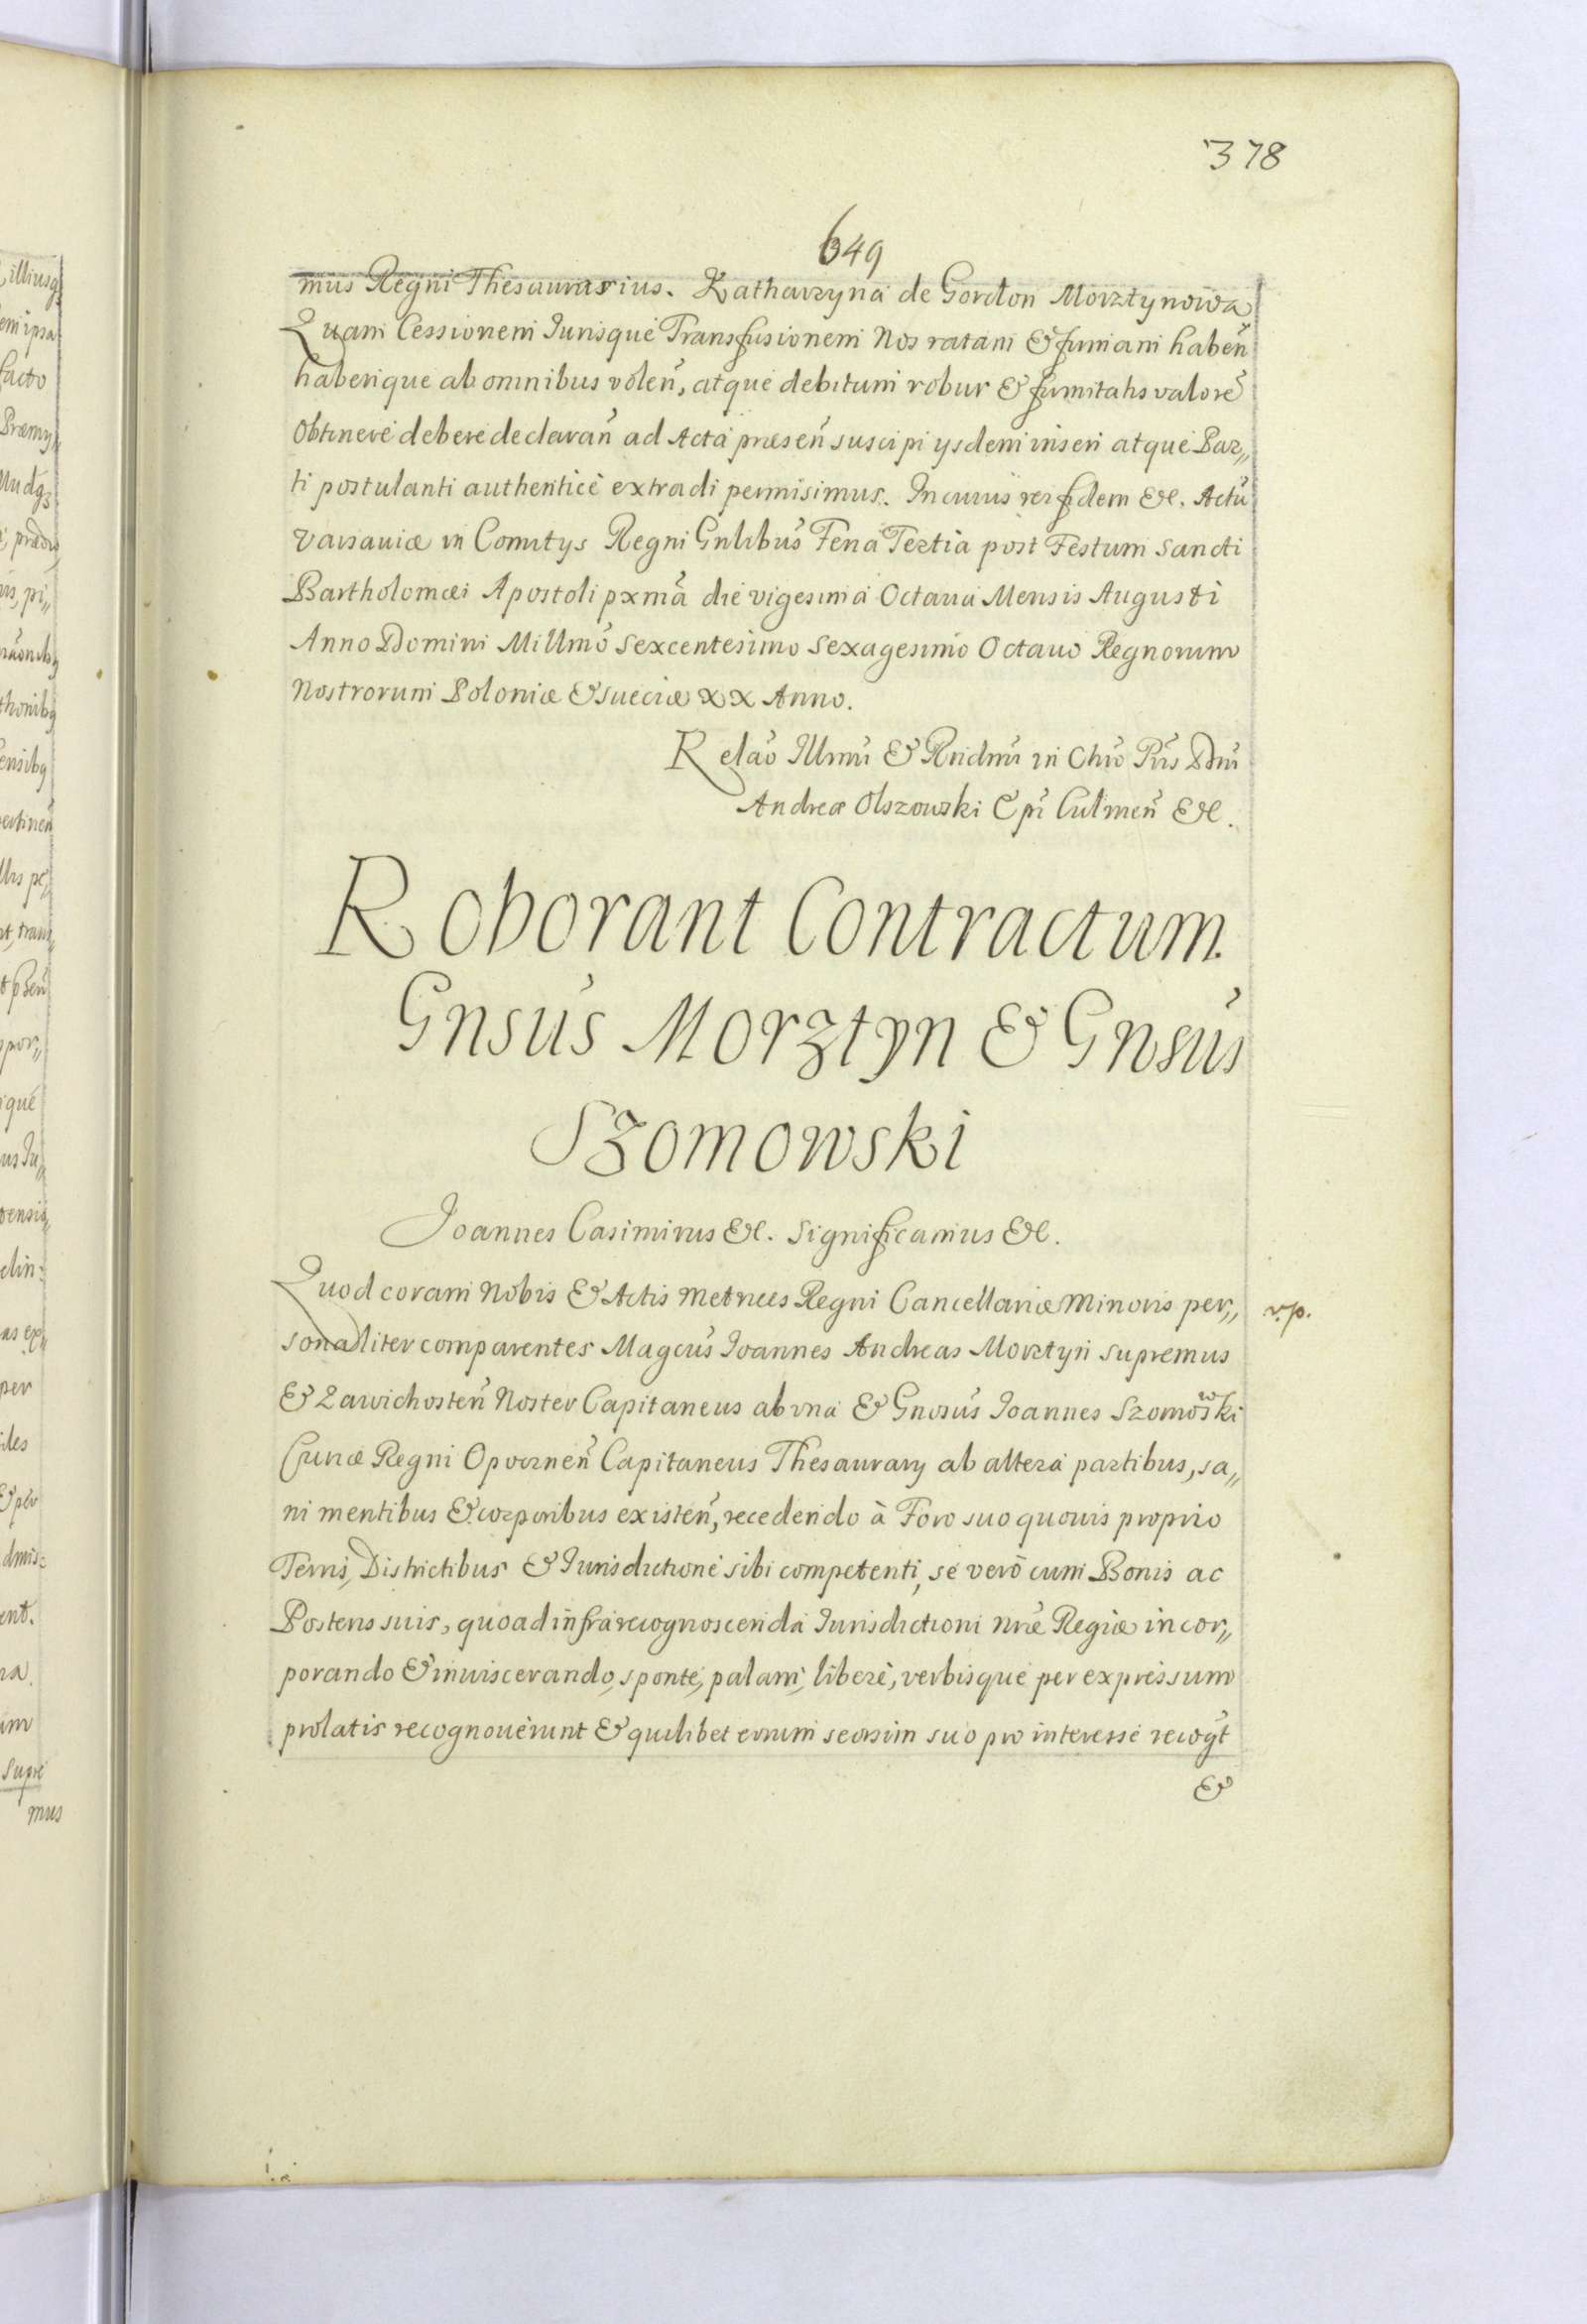 378
649
mus Regni Thesaurarius. Katharzyna de Gordon Morztynowa
Quam Cessionem Jurisque Transfusionem Nos ratam & firmam habeñ
haberique ab omnibus voleñ, atque debitum robur & firmitatis valorẽ
obtinere debere declarañ ad Acta præseñ suscipi ysdem inseri atque Par„
ti postulanti authenticè extradi permisimus. In cuius rei fidem &c. Actũ
Varsaviæ in Comitys Regni Gnlibus Feria Tertia post Festum Sancti
Bartholomæi Apostoli pxmã die vigesima Octava Mensis Augusti
Anno Domini Millmo Sexcentesimo Sexagesimo Octavo Regnorum
Nostrorum Poloniæ & Sueciæ XX Anno.
Relao Illmi & Rndmi in Chro Pris Dni
Andreæ Olszowski Epi Culmeñ &c.
Roborant Contractum.
Gnsus Morztyn & Gnsus
Szomowski
Joannes Casimirus &c. Significamus &c.
Quod coram Nobis & Actis Metrices Regni Cancellariæ Minoris per„
r.p.
sonaliter comparentes Magcus Joannes Andreas Morztyn Supremus
& Zawichosteñ Noster Capitaneus ab vna & Gnosus Joannes Szomowski
Curiæ Regni Opoczneñ Capitaneus Thesaurary ab altera partibus, sa„
ni mentibus & corporibus existeñ, recedendo à Foro suo quovis proprio
Terris, Districtibus & Jurisdictione sibi competenti, se verò cum Bonis ac
Posteris suis, quoad infra recognoscenda Jurisdictioni nrae Regiæ incor„
porando & inviscerando, sponte, palam, liberè, verbisque per expressum
prolatis recognoverunt & quilibet eorum seorsim suo pro interesse recogt
&